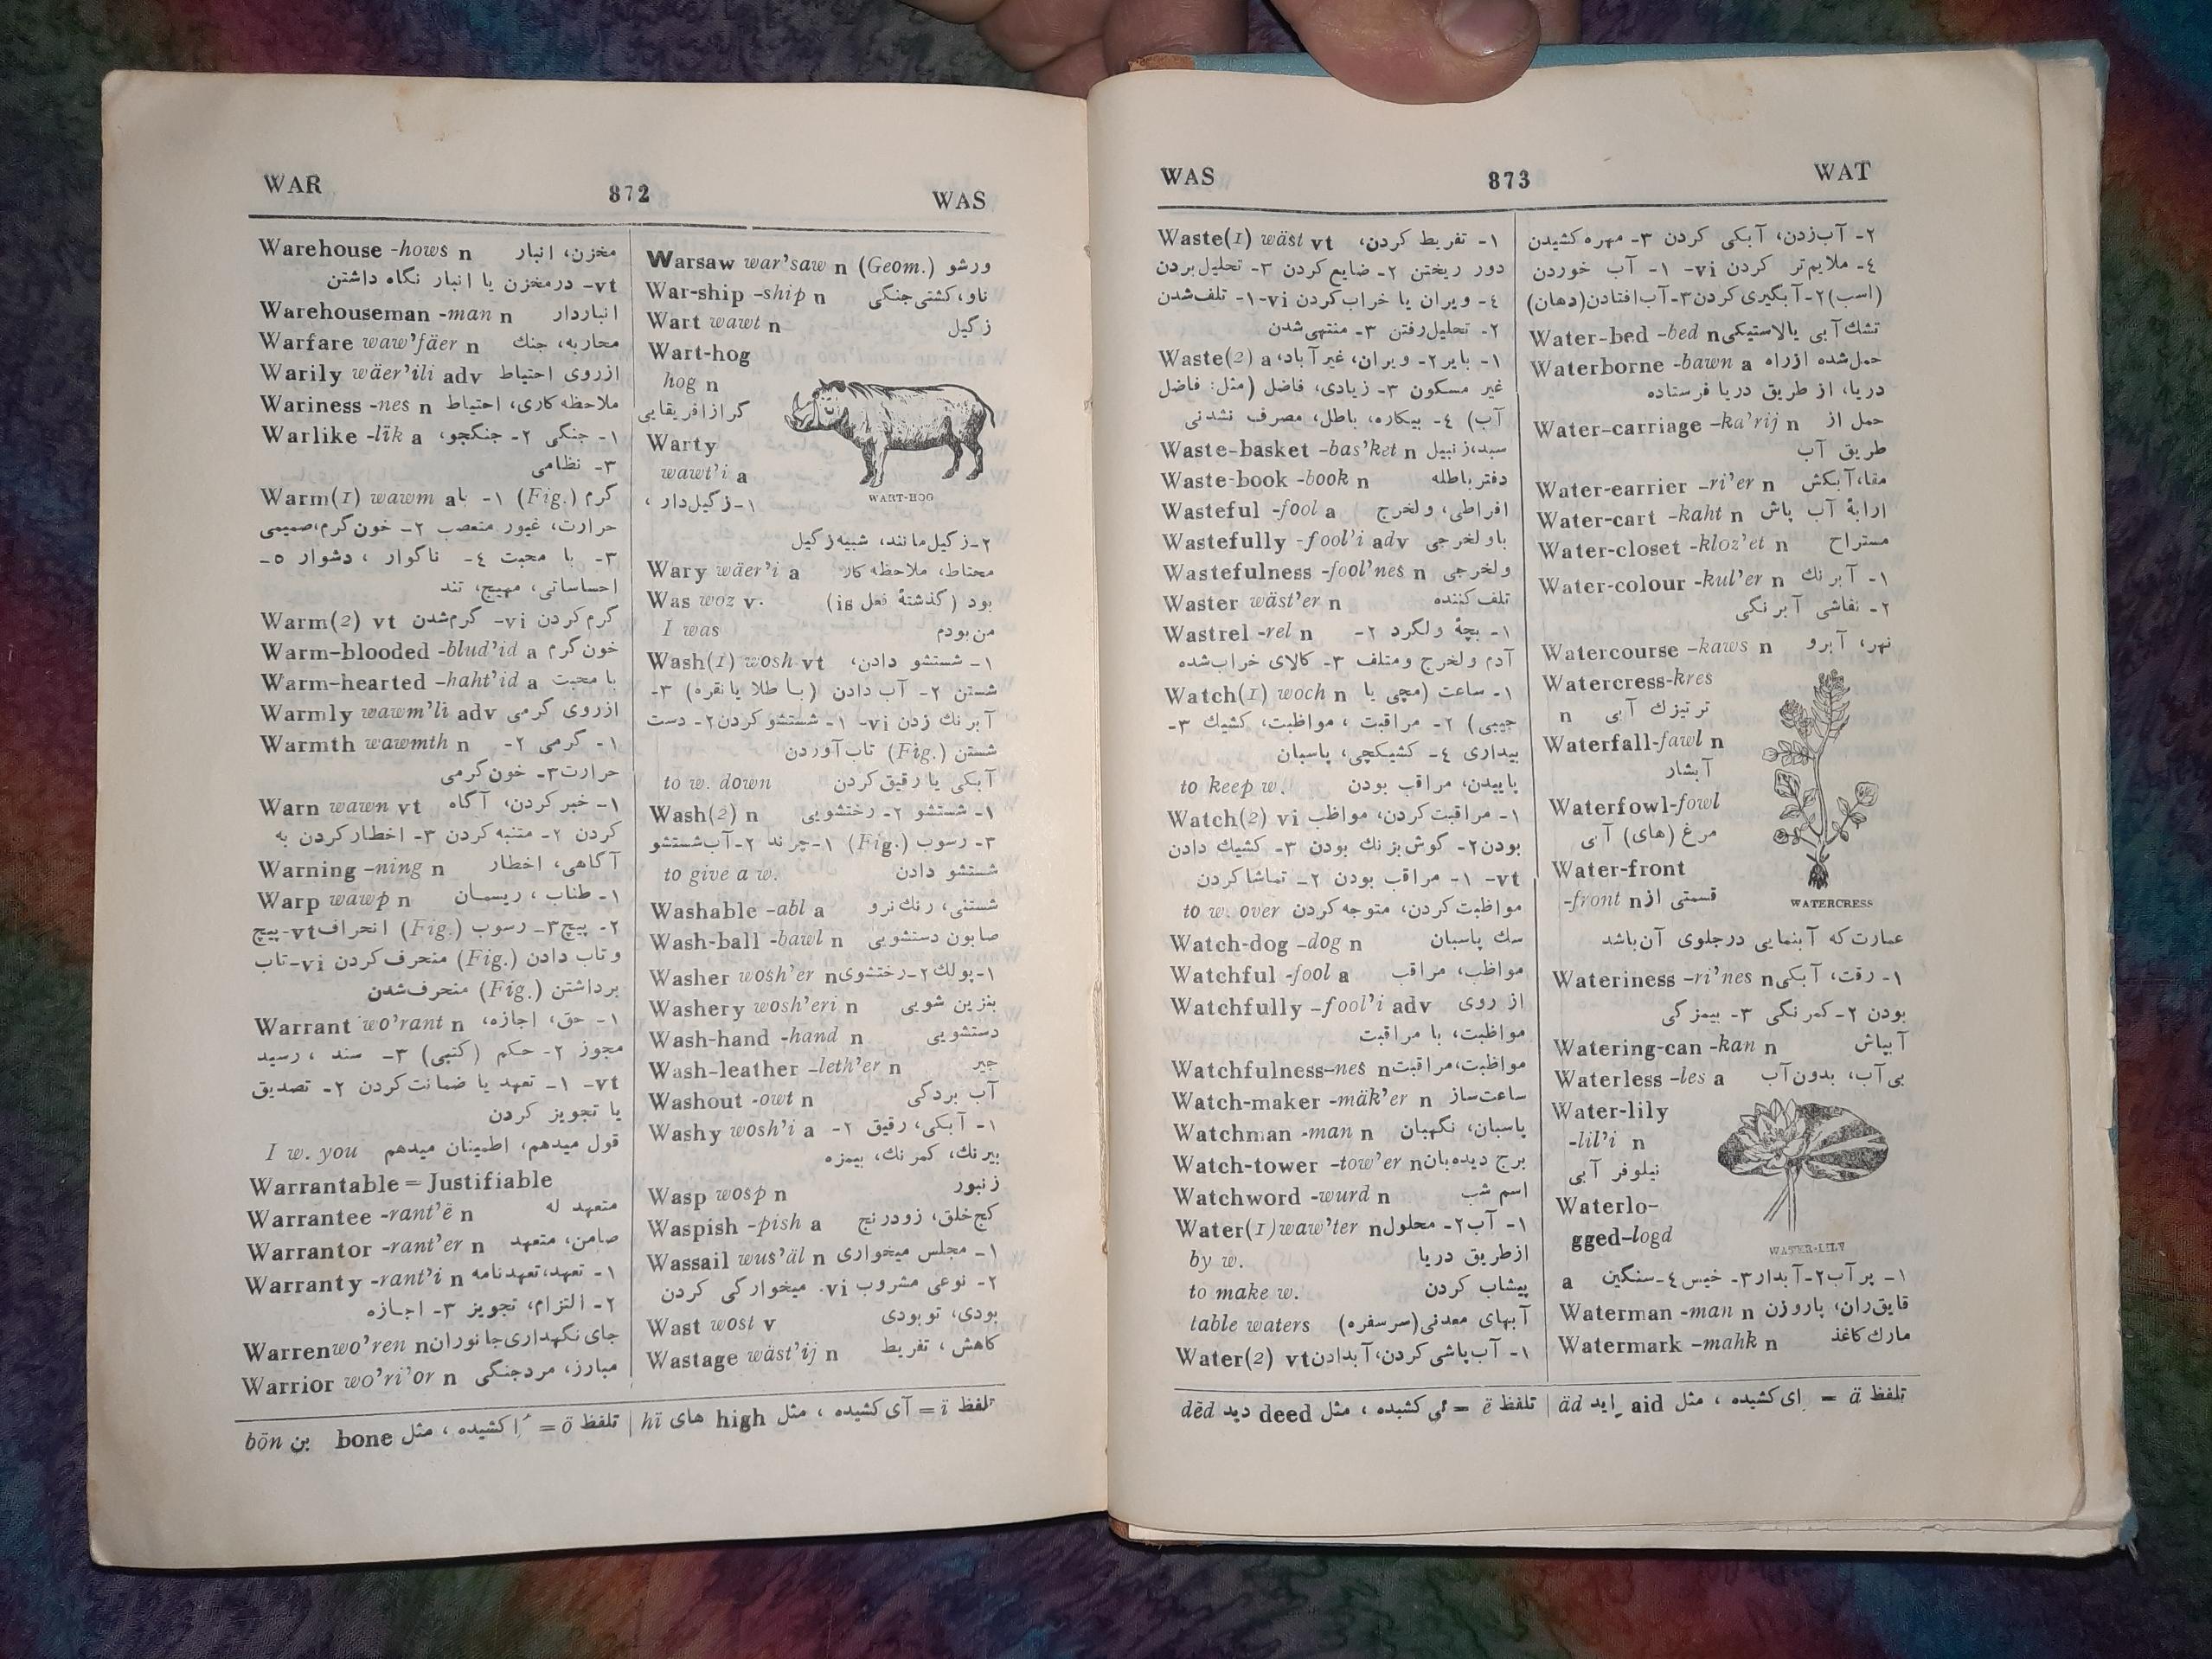 WAR 872 WAS
Warehouse -hows n مخزن، انبار
vt- درمخزن یا انبار نگاه داشتن
Warehouseman -man n انباردار
Warfare waw'fäer n محاربه، جنك
Warily wäer'ili adv ازروی احتیاط
Wariness -nes n ملاحظه کاری، احتیاط
Warlike -līk a ۱- جنگی ۲- جنگجو،
۳- نظامی
Warm(1) wawm a گرم (Fig.) ۱- با
حرارت، غیور متعصب ۲- خون‌گرم،صمیمی
۳- با محبت ٤- ناگوار ، دشوار ٥-
احساساتی، مهیج، تند
Warm(2) vt گرم‌کردن vi- گرم‌شدن
Warm-blooded -blud'id a خون‌گرم
Warm-hearted -haht'id a با محبت
Warmly wawm'li adv ازروی گرمی
Warmth wawmth n ۱- گرمی ۲-
حرارت۳- خون‌گرمی
Warn wawn vt ۱- خبر کردن، آگاه
کردن ۲- متنبه کردن ۳- اخطار کردن به
Warning -ning n آگاهی، اخطار
Warp wawp n ۱- طناب ، ریسمان
۲- پیچ۳- رسوب (Fig.) انحراف vt-پیچ
وتاب دادن (Fig.) منحرف کردن vi-تاب
برداشتن (Fig.) منحرف‌شدن
Warrant wo'rant n ۱- حق، اجازه،
مجوز ۲- حکم (کتبی) ۳- سند ، رسید
vt- ۱- تعهد یا ضمانت‌کردن ۲- تصدیق
یا تجویز کردن
I w. you قول میدهم، اطمینان میدهم
Warrantable = Justifiable
Warrantee -rant'ē n متعهد له
Warrantor -rant'er n ضامن، متعهد
Warranty -rant'i n ۱- تعهد،تعهدنامه
۲- التزام، تجویز ۳- اجازه
Warren wo'ren n جای نگهداری‌جانوران
Warrior wo'ri'or n مبارز، مردجنگی
Warsaw war'saw n (Geom.) ورشو
War-ship -ship n ناو، کشتی‌جنگی
Wart wawt n زگیل
Wart-hog
hog n
گرازافریقایی
WART-HOG
Warty
wawt'i a
۱-زگیل‌دار ،
۲-زگیل‌مانند، شبیه‌زگیل
Wary wäer'i a محتاط، ملاحظه کار
Was woz v. بود (گذشتهٔ فعل is)
I was من‌بودم
Wash(1) wosh vt ۱- شستشو دادن،
شستن ۲- آب‌دادن (با طلا یا نقره) ۳-
آبرنك زدن vi- ۱- شستشو کردن۲- دست
شستن (Fig.) تاب‌آوردن
to w. down آبکی یا رقیق‌کردن
Wash(2) n ۱- شستشو ۲- رختشویی
۳- رسوب (Fig.) ۱-چرند ۲-آب‌شستشو
to give a w. شستشو دادن
Washable -abl a شستنی، رنك نرو
Wash-ball -bawl n صابون دستشویی
Washer wosh'er n ۱-پولك ۲-رختشوی
Washery wosh'eri n بنزین شویی
Wash-hand -hand n دستشویی
Wash-leather -leth'er n جیر
Washout -owt n آب بردگی
Washy wosh'i a ۱- آبکی، رقیق ۲-
بیرنك، کمرنك، بیمزه
Wasp wosp n زنبور
Waspish -pish a کج‌خلق، زودرنج
Wassail wus'äl n ۱- مجلس میخواری
۲- نوعی مشروب vi. میخوارگی کردن
Wast wost v بودی، توبودی
Wastage wäst'ij n کاهش ، تفریط
تلفظ ī = آی کشیده ، مثل high های hī | تلفظ ō = اُ کشیده ، مثل bone بن bōn
WAS 873 WAT
Waste(1) wäst vt ۱- تفریط کردن،
دور ریختن ۲- ضایع‌کردن ۳- تحلیل‌بردن
٤- ویران یا خراب‌کردن vi-۱- تلف‌شدن
۲- تحلیل‌رفتن ۳- منتهی‌شدن
Waste(2) a ۱- بایر۲- ویران، غیرآباد،
غیر مسکون ۳- زیادی، فاضل (مثل: فاضل
آب) ٤- بیکاره، باطل، مصرف نشدنی
Waste-basket -bas'ket n سبد،زنبیل
Waste-book -book n دفترباطله
Wasteful -fool a افراطی، ولخرج
Wastefully -fool'i adv باولخرجی
Wastefulness -fool'nes n ولخرجی
Waster wäst'er n تلف‌کننده
Wastrel -rel n ۱- بچهٔ ولگرد ۲-
آدم ولخرج ومتلف ۳- کالای خراب‌شده
Watch(1) woch n ۱- ساعت (مچی یا
جیبی) ۲- مراقبت ، مواظبت، کشیك ۳-
بیداری ٤- کشیکچی، پاسبان
to keep w. پاییدن، مراقب بودن
Watch(2) vi ۱- مراقبت‌کردن، مواظب
بودن۲- گوش‌بزنك بودن ۳- کشیك دادن
vt- ۱- مراقب بودن ۲- تماشاکردن
to w. over مواظبت‌کردن، متوجه‌کردن
Watch-dog -dog n سك پاسبان
Watchful -fool a مواظب، مراقب
Watchfully -fool'i adv از روی
مواظبت، با مراقبت
Watchfulness-nes n مواظبت،مراقبت
Watch-maker -mäk'er n ساعت‌ساز
Watchman -man n پاسبان، نگهبان
Watch-tower -tow'er n برج دیده‌بان
Watchword -wurd n اسم شب
Water(1) waw'ter n ۱- آب۲- محلول
by w. ازطریق دریا
to make w. پیشاب کردن
table waters آبهای معدنی(سرسفره)
Water(2) vt ۱- آب‌پاشی‌کردن،آبدادن
۲- آب‌زدن، آبکی کردن ۳- مهره‌کشیدن
٤- ملایم‌تر کردن vi- ۱- آب خوردن
(اسب)۲-آبگیری‌کردن۳-آب‌افتادن(دهان)
Water-bed -bed n تشك‌آبی یالاستیکی
Waterborne -bawn a حمل‌شده ازراه
دریا، از طریق دریا فرستاده
Water-carriage -ka'rij n حمل از
طریق آب
Water-earrier -ri'er n مقا،آبکش
Water-cart -kaht n ارابهٔ آب پاش
Water-closet -kloz'et n مستراح
Water-colour -kul'er n ۱- آبرنك
۲- نقاشی آبرنگی
Watercourse -kaws n نهر، آبرو
Watercress-kres
n ترتیزك آبی
Waterfall-fawl n
آبشار
Waterfowl-fowl
مرغ (های) آبی
Water-front
-front n قسمتی از
WATERCRESS
عمارت‌که آبنمایی درجلوی آن‌باشد
Wateriness -ri'nes n ۱- رقت، آبکی
بودن ۲-کمرنگی ۳- بیمزگی
Watering-can -kan n آبپاش
Waterless -les a بی‌آب، بدون‌آب
Water-lily
-lil'i n
نیلوفر آبی
Waterlo-
gged-logd
WATER-LILY
a ۱- پرآب۲-آبدار۳- خیس٤-سنگین
Waterman -man n قایق‌ران، پاروزن
Watermark -mahk n مارك‌کاغذ
تلفظ ä = اِی‌کشیده ، مثل aid اِید äd | تلفظ ē = ئی کشیده ، مثل deed دید dēd